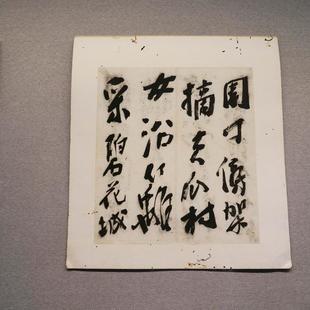 園丁傍架
摘黄瓜村
女沿籬
采碧花城